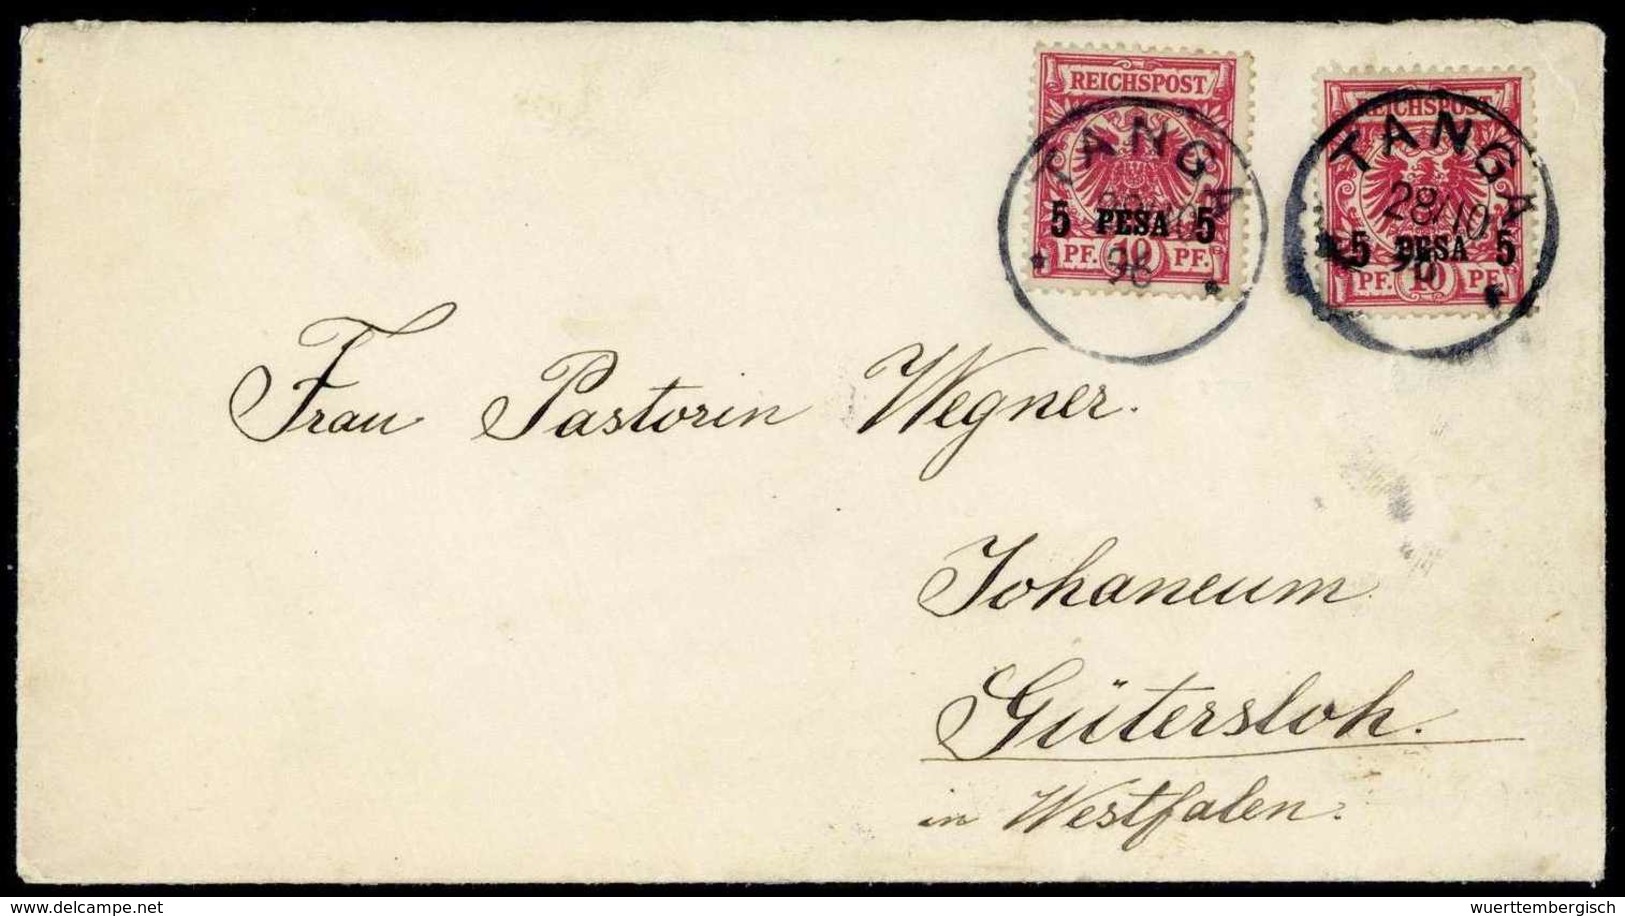 REICHSPOST
TANGA
5 PESA 5
PF. 10 PF.
96
REICHSPOST
TANGA
28/10
96
5 PESA 5
PF. 10 PF.
Frau Pastorin Wegner.
Johaneum
Gütersloh.
in Westfalen.
delcampe.net
wuerttembergisch